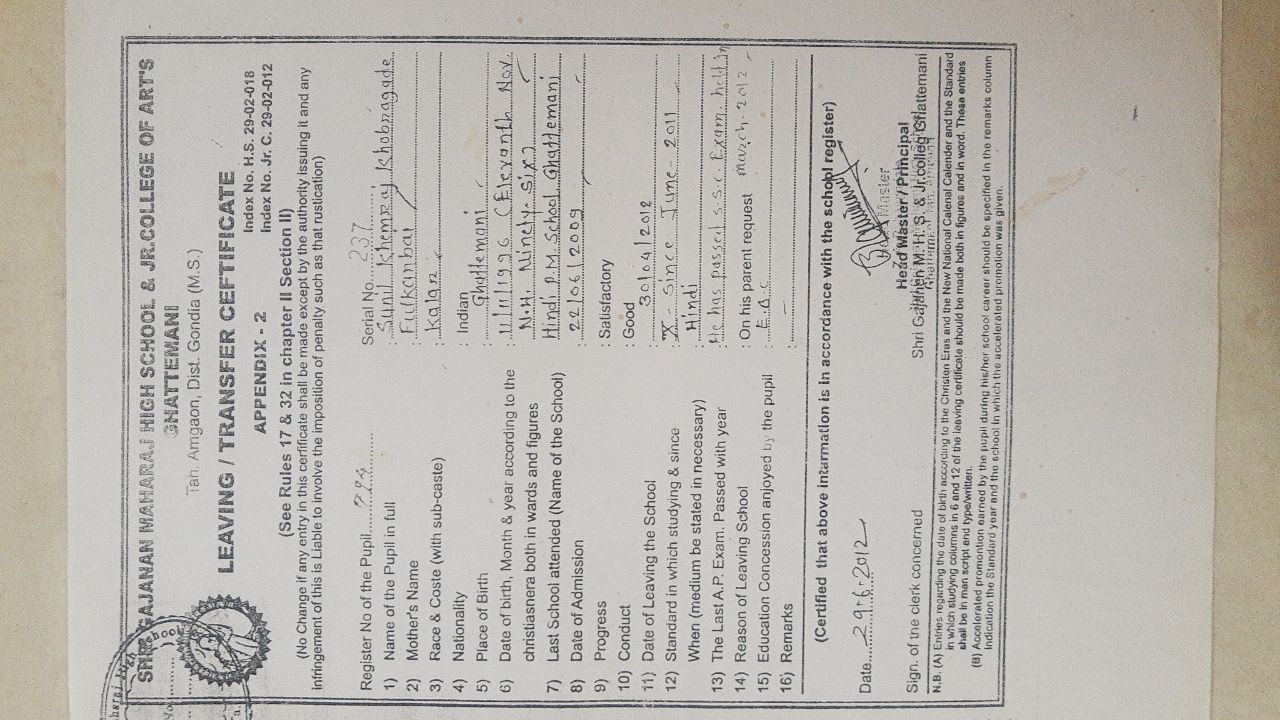 SHRI GAJANAN MAHARAJ HIGH SCHOOL & JR.COLLEGE OF ART'S
GHATTEMANI
Tah. Amgaon, Dist. Gondia (M.S.)
LEAVING / TRANSFER CEFTIFICATE
Index No. H.S. 29-02-018
APPENDIX - 2
Index No. Jr. C. 29-02-012
(See Rules 17 & 32 in chapter II Section II)
(No Change if any entry in this cerfificate shall be made except by the authority issuing it and any
infringement of this is Liable to involve the imposition of penalty, such as that rustication)
Register No of the Pupil
Serial No. 237
1) Name of the Pupil in full : Sunil Khemraj Khobragade
2) Mother's Name : Fulkanbai
3) Race & Coste (with sub-caste) : Kalar
4) Nationality : Indian
5) Place of Birth : Ghattemani
6) Date of birth, Month & year according to the : 11/11/1996 (Elevanth Nov.
christiasnera both in wards and figures N.H. Ninety-Six)
7) Last School attended (Name of the School) Hindi P.M. School Ghattemani
8) Date of Admission : 22/06/2009
9) Progress : Satisfactory
10) Conduct : Good
11) Date of Leaving the School : 30/04/2012
12) Standard in which studying & since : X - Since June - 2011
When (medium be stated in necessary) Hindi
13) The Last A.P. Exam. Passed with year : He has passed S.S.C Exam. held in
14) Reason of Leaving School : On his parent request March-2012
15) Education Concession enjoyed by the pupil :
16) Remarks : —
(Certified that above intarmation is in accordance with the school register)
Date 29.6.2012
Head Master / Principal
Sign. of the clerk concerned
Shri Gajanan M. H. S. & Jr.colleg Ghattemani
N.B. (A) Entries regarding the date of birth according to the Christen Eras and the New National Calenal Calender and the Standard
in which studying columns in 6 and 12 of the leaving certificate should be made both in figures and in word. These entries
shall be in man script and type/written.
(B) Accelerated promontion earned by the pupil during his/her school career should be specified in the remarks column
Indication the Standard year and the school in which the accelerated promotion was given.